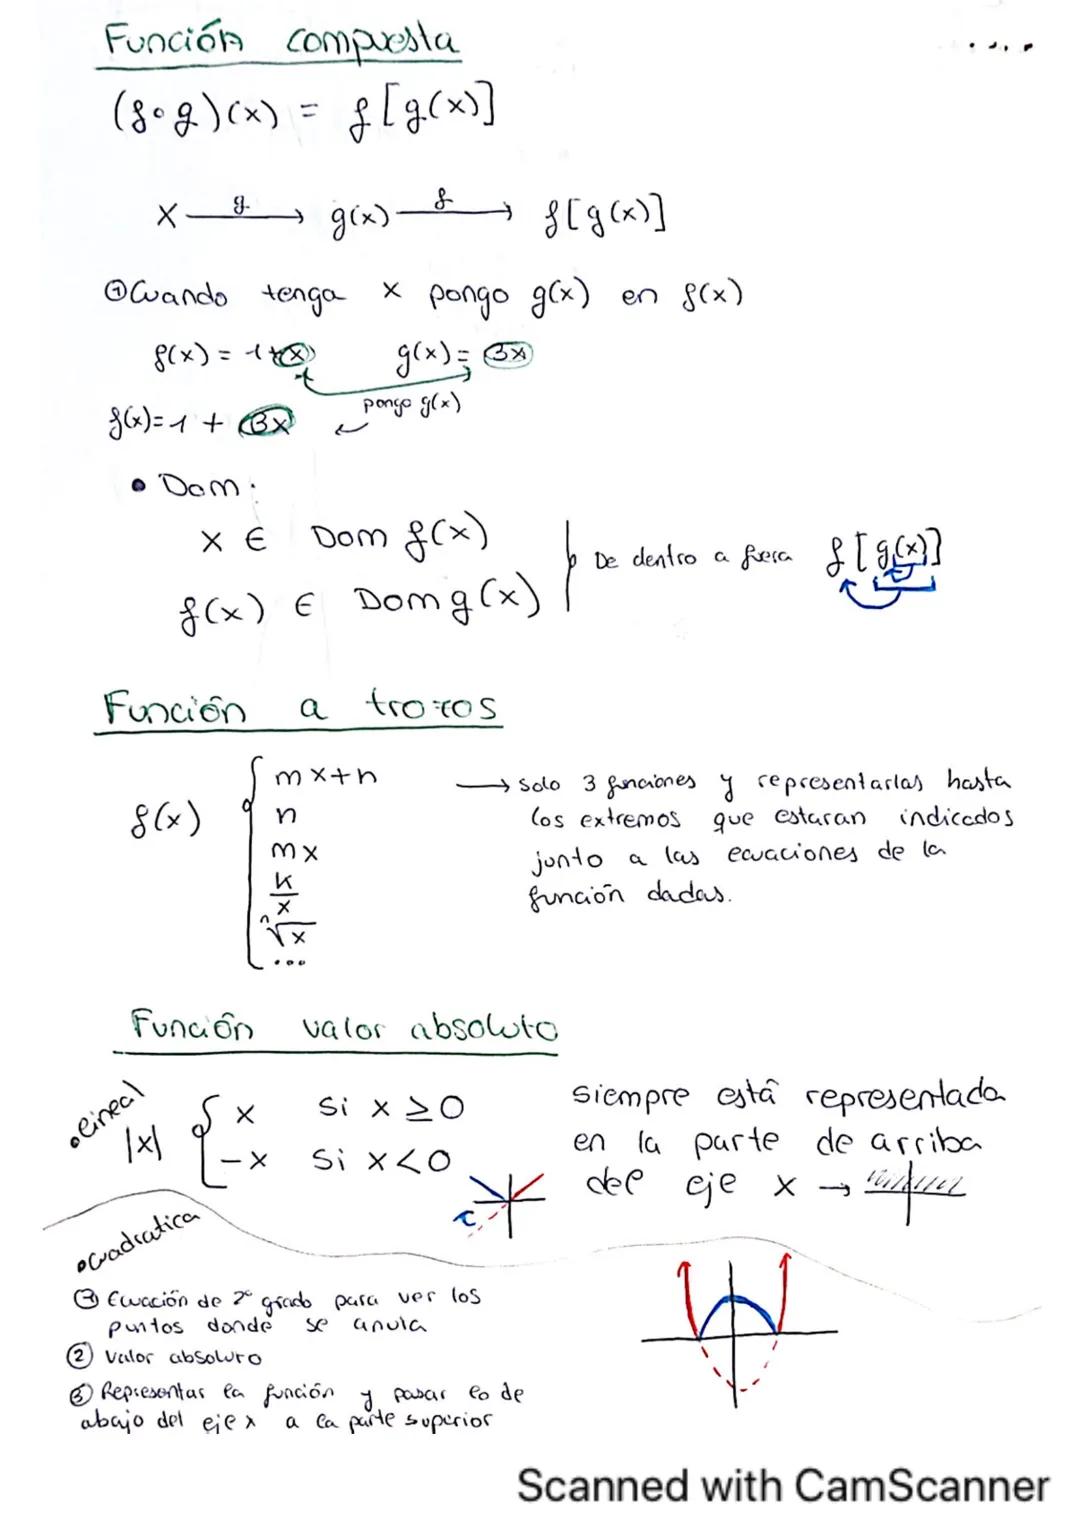 Función compuesta
(f∘g)(x) = f[g(x)]
x —g→ g(x) —f→ f[g(x)]
① Cuando tenga x pongo g(x) en f(x)
f(x) = 1+x g(x) = 3x
pongo g(x)
f(x)=1 + 3x
• Dom:
x ∈ Dom f(x)
f(x) ∈ Dom g(x)
De dentro a fuera f[g(x)]
Función a trozos
f(x) { mx+n
n
mx
k/x
ⁿ√x
...
→ Solo 3 funciones y representarlas hasta
los extremos que estaran indicados
junto a las ecuaciones de la
función dadas.
Función valor absoluto
• lineal
|x| { x si x ≥ 0
-x si x < 0
siempre está representada
en la parte de arriba
del eje x →
• cuadratica
① Ecuación de 2º grado para ver los
puntos donde se anula
② Valor absoluto
③ Representar la función y pasar lo de
abajo del eje x a la parte superior
Scanned with CamScanner